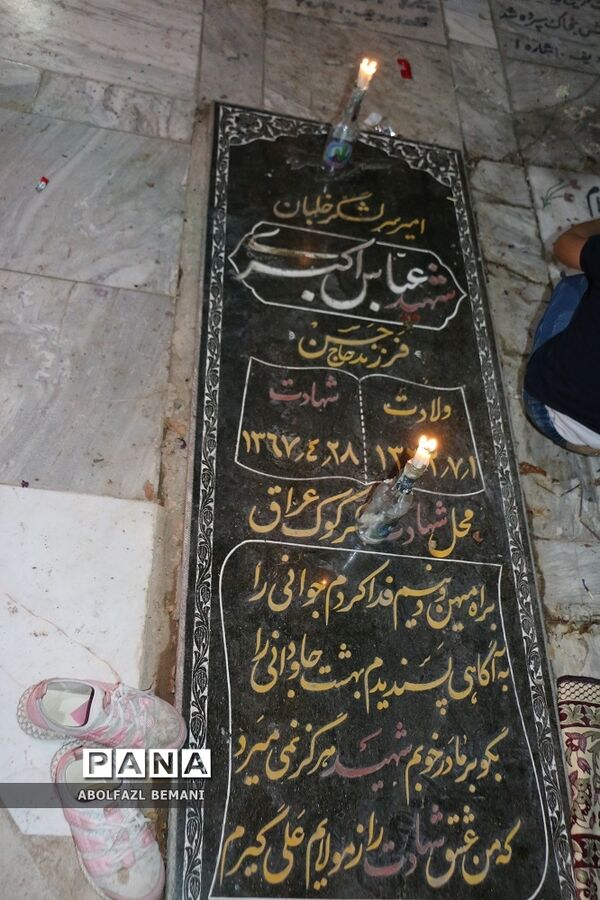 امیر سرلشگر خلبان
شهید عباس اکبری
فرزند حاج حسن
ولادت
شهادت
۱۳۶۷٫۴٫۲۸
محل شهادت کرکوک عراق
براه میهن و دینم فدا کردم جوانی را
به آگاهی پسندیدم بهشت جاودانی را
بگو بر مادر خوبم شهید هرگز نمی میرد
که من عشق شهادت را ز مولایم علی گیرم
PANA
ABOLFAZL BEMANI